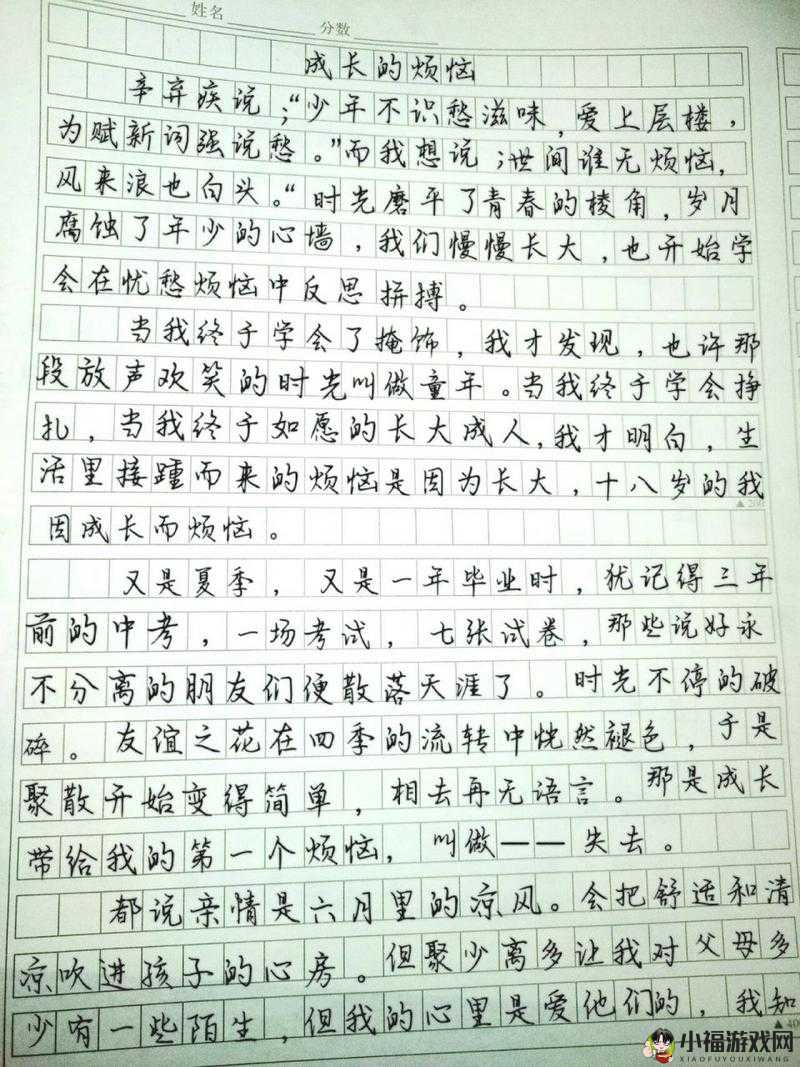 姓名
分数
成长的烦恼
辛弃疾说；“少年不识愁滋味，爱上层楼，
为赋新词强说愁。”而我想说；世间谁无烦恼，
风来浪也白头。“时光磨平了青春的棱角，岁月
腐蚀了年少的心墙，我们慢慢长大，也开始学
会在忧愁烦恼中反思拼搏。
当我终于学会了掩饰，我才发现，也许那
段放声欢笑的时光叫做童年。当我终于学会挣
扎，当我终于如愿的长大成人，我才明白，生
活里接踵而来的烦恼是因为长大，十八岁的我
因成长而烦恼。
▲200
又是夏季，又是一年毕业时，犹记得三年
前的中考，一场考试，七张试卷，那些说好永
不分离的朋友们便散落天涯了。时光不停的破
碎。友谊之花在四季的流转中恍然褪色，于是
聚散开始变得简单，相去再无语言。那是成长
带给我的第一个烦恼，叫做——失去。
都说亲情是六月里的凉风。会把舒适和清
凉吹进孩子的心房。但聚少离多让我对父母多
少有一些陌生，但我的心里是爱他们的，我知
▲40
小福游戏网
XIAOFUYOUXIWANG